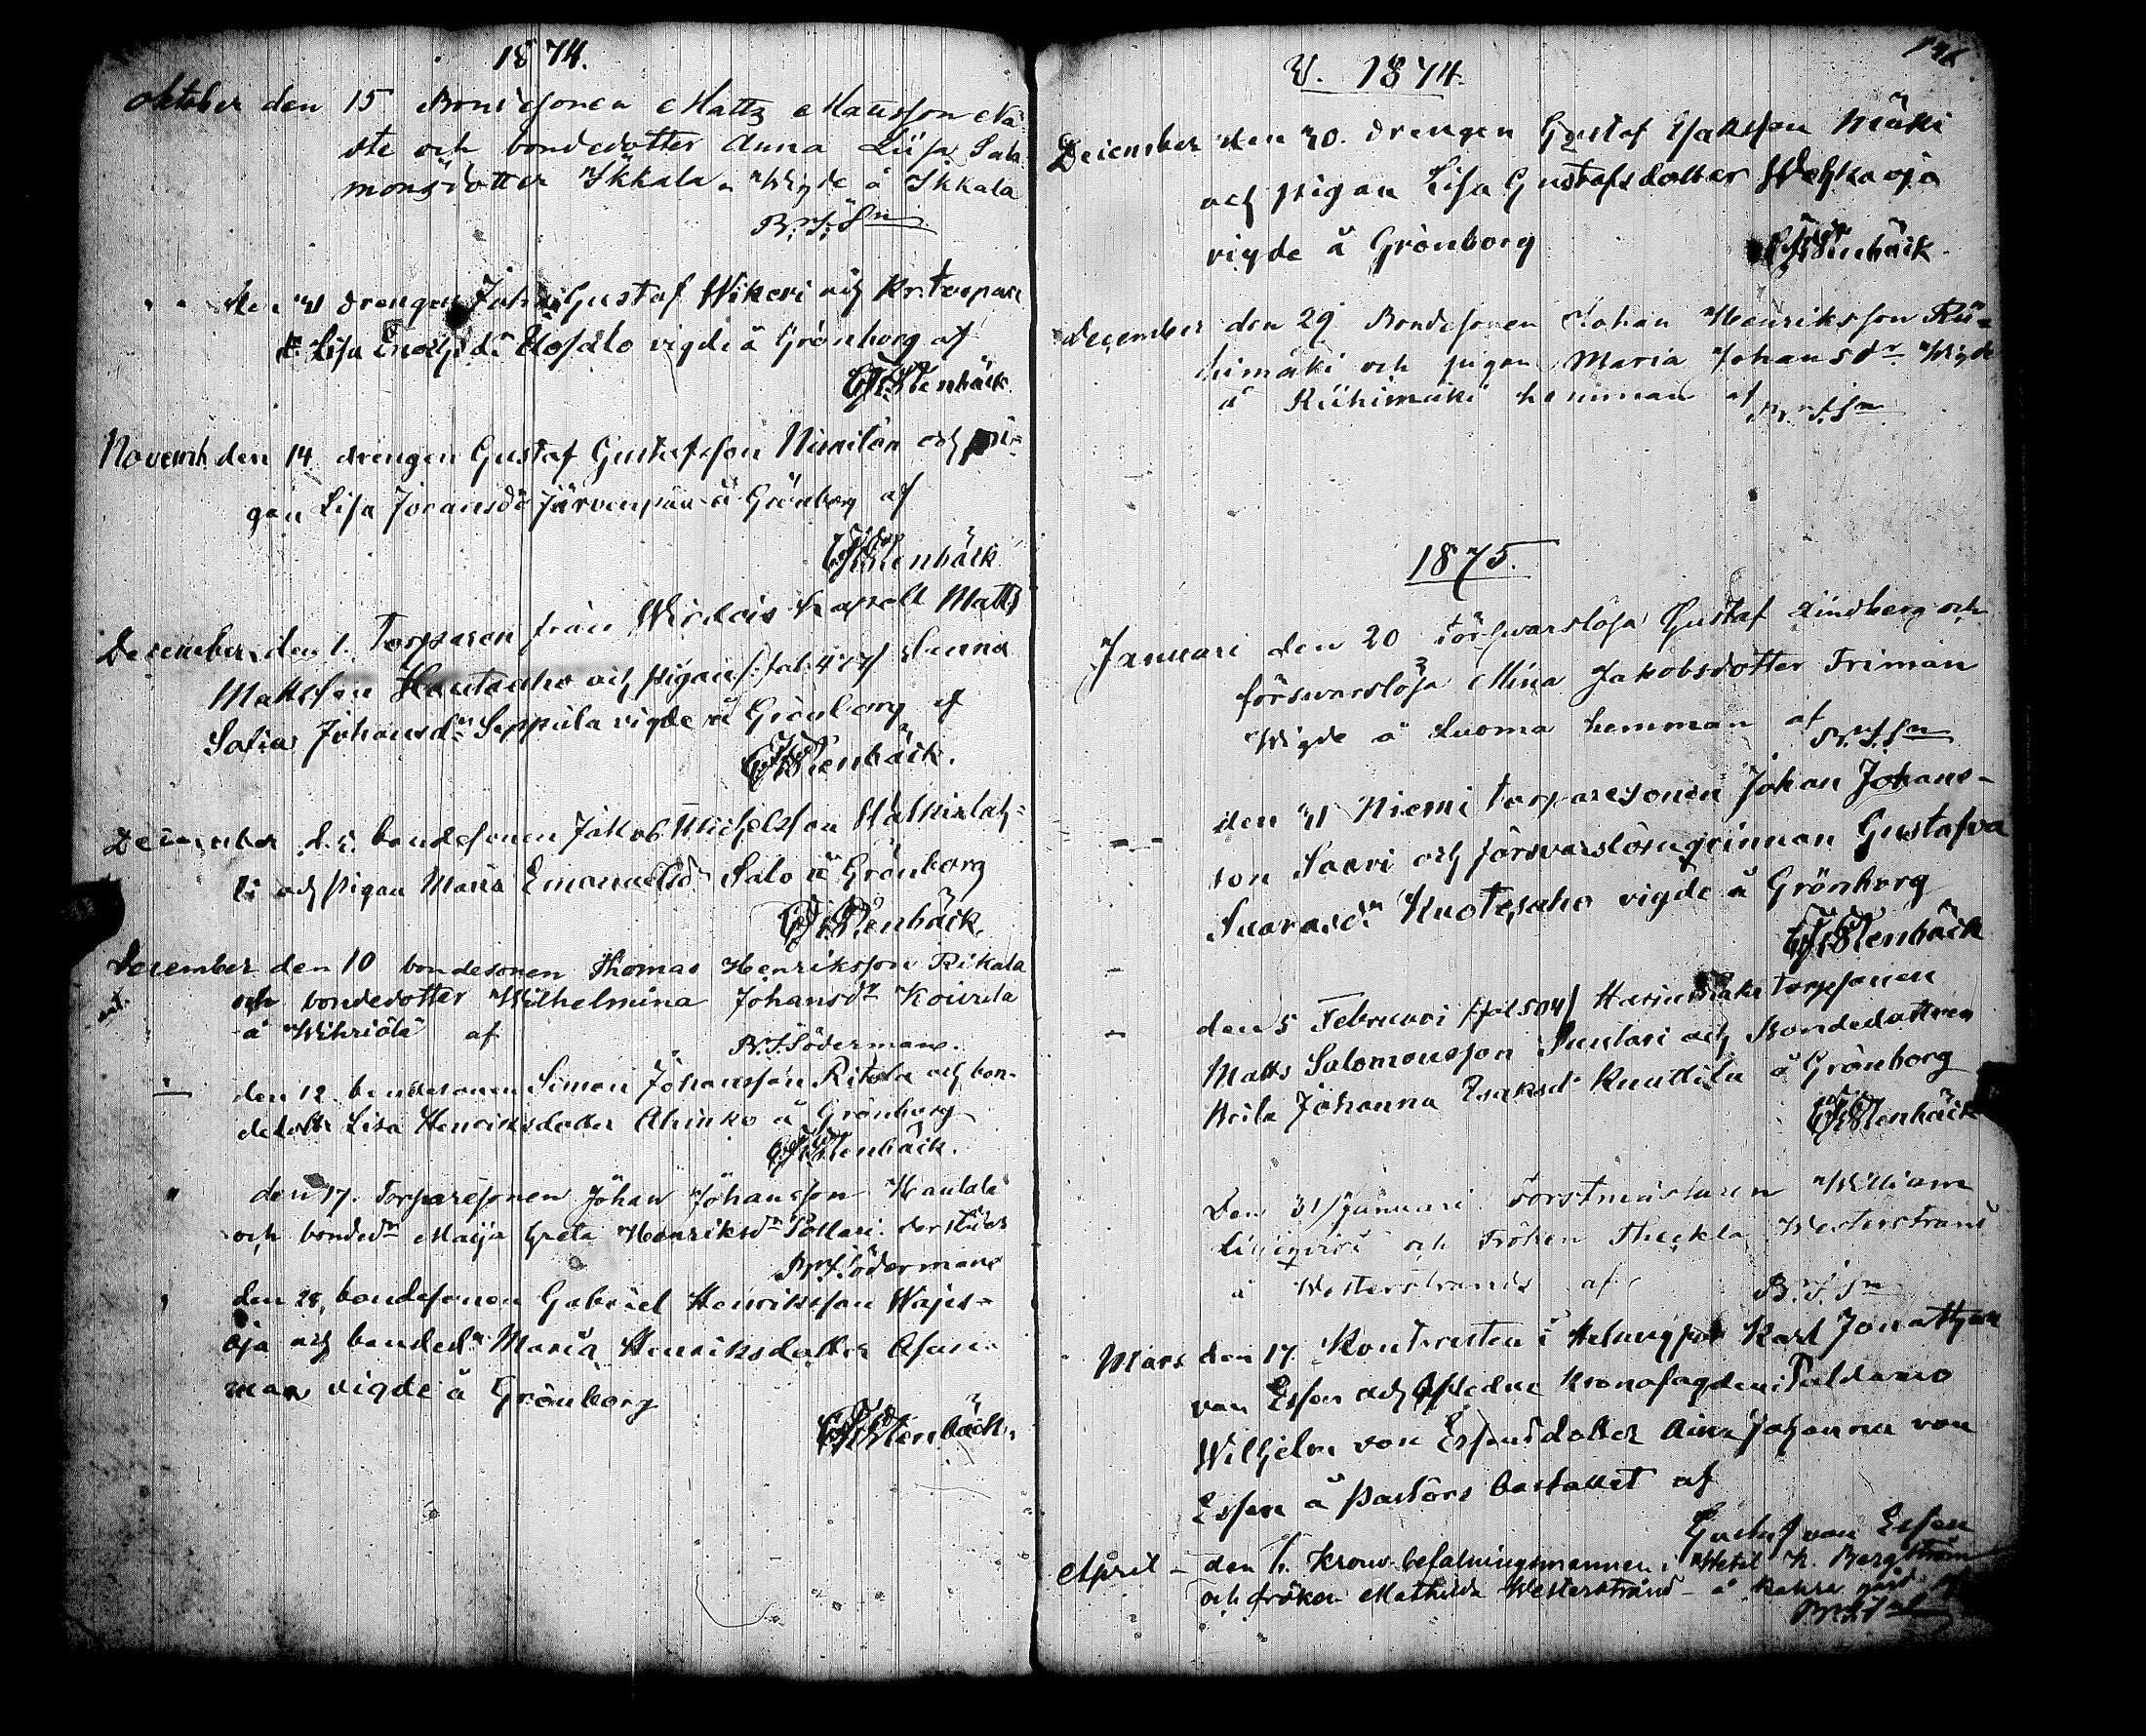 1874.
Oktober den 15 Bondesonen Matts Mattsson Nä-
ste och bondedotter Anna Liisa Salo-
monsdotter Ikkala. Wigde å Ikkala
B.F.Sn
den 21 drengen Johan Gustaf Wikeri och
Lisa Enochsdr vigde å Grönborg af
Stenbäck
Novemb. den 14 drengen Gustaf Gustafsson och pi-
gan Lisa Johansdr Järvenpää å Grönborg af
Stenbäck
December den 1. Torparen från Wirdois kapell Matts
Mattsson Hautaaho och pigan Senna
Sofia Johansdr Seppälä vigde å Grönborg af
Stenbäck.
December d. 5. bondesonen Jakob Michelsson
och pigan Maria Emanuelsdr Salo å Grönborg
Stenbäck.
December den 10 bondesonen Thomas Henriksson Rikala
och bondedotter Wilhelmina Johansdr Koivula
å Wihriälä af
B.F.Söderman.
den 12. bondesonen Simon Johansson Ritola och bon-
dedottr Lisa Henriksdotter Ahinko å Grönborg
Stenbäck.
" den 17. Torparesonen Johan Johansson Kantala
och bondedr Maija Greta Henriksdr Pollari. derstädes
B.F.Söderman
den 28. bondesonen Gabriel Henriksson Wajus-
oja och bondedr Maria Henriksdotter Asun-
maa vigde å Grönborg
Stenbäck.
V. 1874.
December den 20. drengen Gustaf Isaksson Mäki
och pigan Lisa Gustafsdotter Wehkaoja
vigde å Grönborg
Stenbäck.
December den 29 Bondesonen Johan Henriksson Rii-
himäki och pigan Maria Johansdr Wigde
å Riihimäki hemman af
B.F.Sn
1875.
Januari den 20 Försvarslösa Gustaf Lindberg och
försvarslösa Mina Jakobsdotter Friman
Wigde å Luoma hemman af
B.F.Sn
den 21 Niemi torparesonen Johan Johans-
son Saari och försvarslösa qvinnan Gustafva
Kuotesaho vigde å Grönborg
Stenbäck
den 5 Februari /:fol 504/ torpsonen
Matts Salomonsson Suutari och Bondedottren
Brita Johanna Isaksdr Knuttila å Grönborg
Stenbäck
Den 31/Januari Forstmästaren William
och Fröken Theckla Westerstrand
å Westerstrands af
B.F.Sn
Mars den 17. Kontoristen i Helsingfors Karl Jonathan
von Essen och Kronofogden Waldemar
Wilhelm von Essens dotter Aina Johanna von
Essen å Pastors bostället af
Gustaf von Essen
April - den Kronobefalningsmannen i Wetil K. Bergström
och fröken Mathilda Westerstrand - å gård af